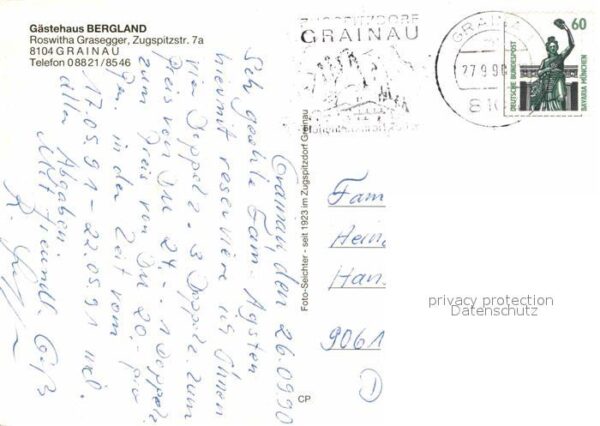 Gästehaus BERGLAND
Roswitha Grasegger, Zugspitzstr. 7a
8104 GRAINAU
Telefon 08821/8546
GRAINAU
GRAINAU
27.9.90
60
DEUTSCHE BUNDESPOST
BAVARIA MÜNCHEN
Grainau, den 26.09.90
Sehr geehrte Fam. Agsten
hiermit reserviere ich Ihnen
vie Doppelz. 3 Doppelz. zum
Preis von DM 24,- 1 Doppelz.
zum Preis von DM 20,- pro
Per. in der Zeit vom
17.05.91 - 22.05.91 inkl.
aller Abgaben.
Mit freundl. Grüß
Foto-Seichter - seit 1923 im Zugspitzdorf Grainau
CP
Fam
Hein
Han
9061
privacy protection
Datenschutz